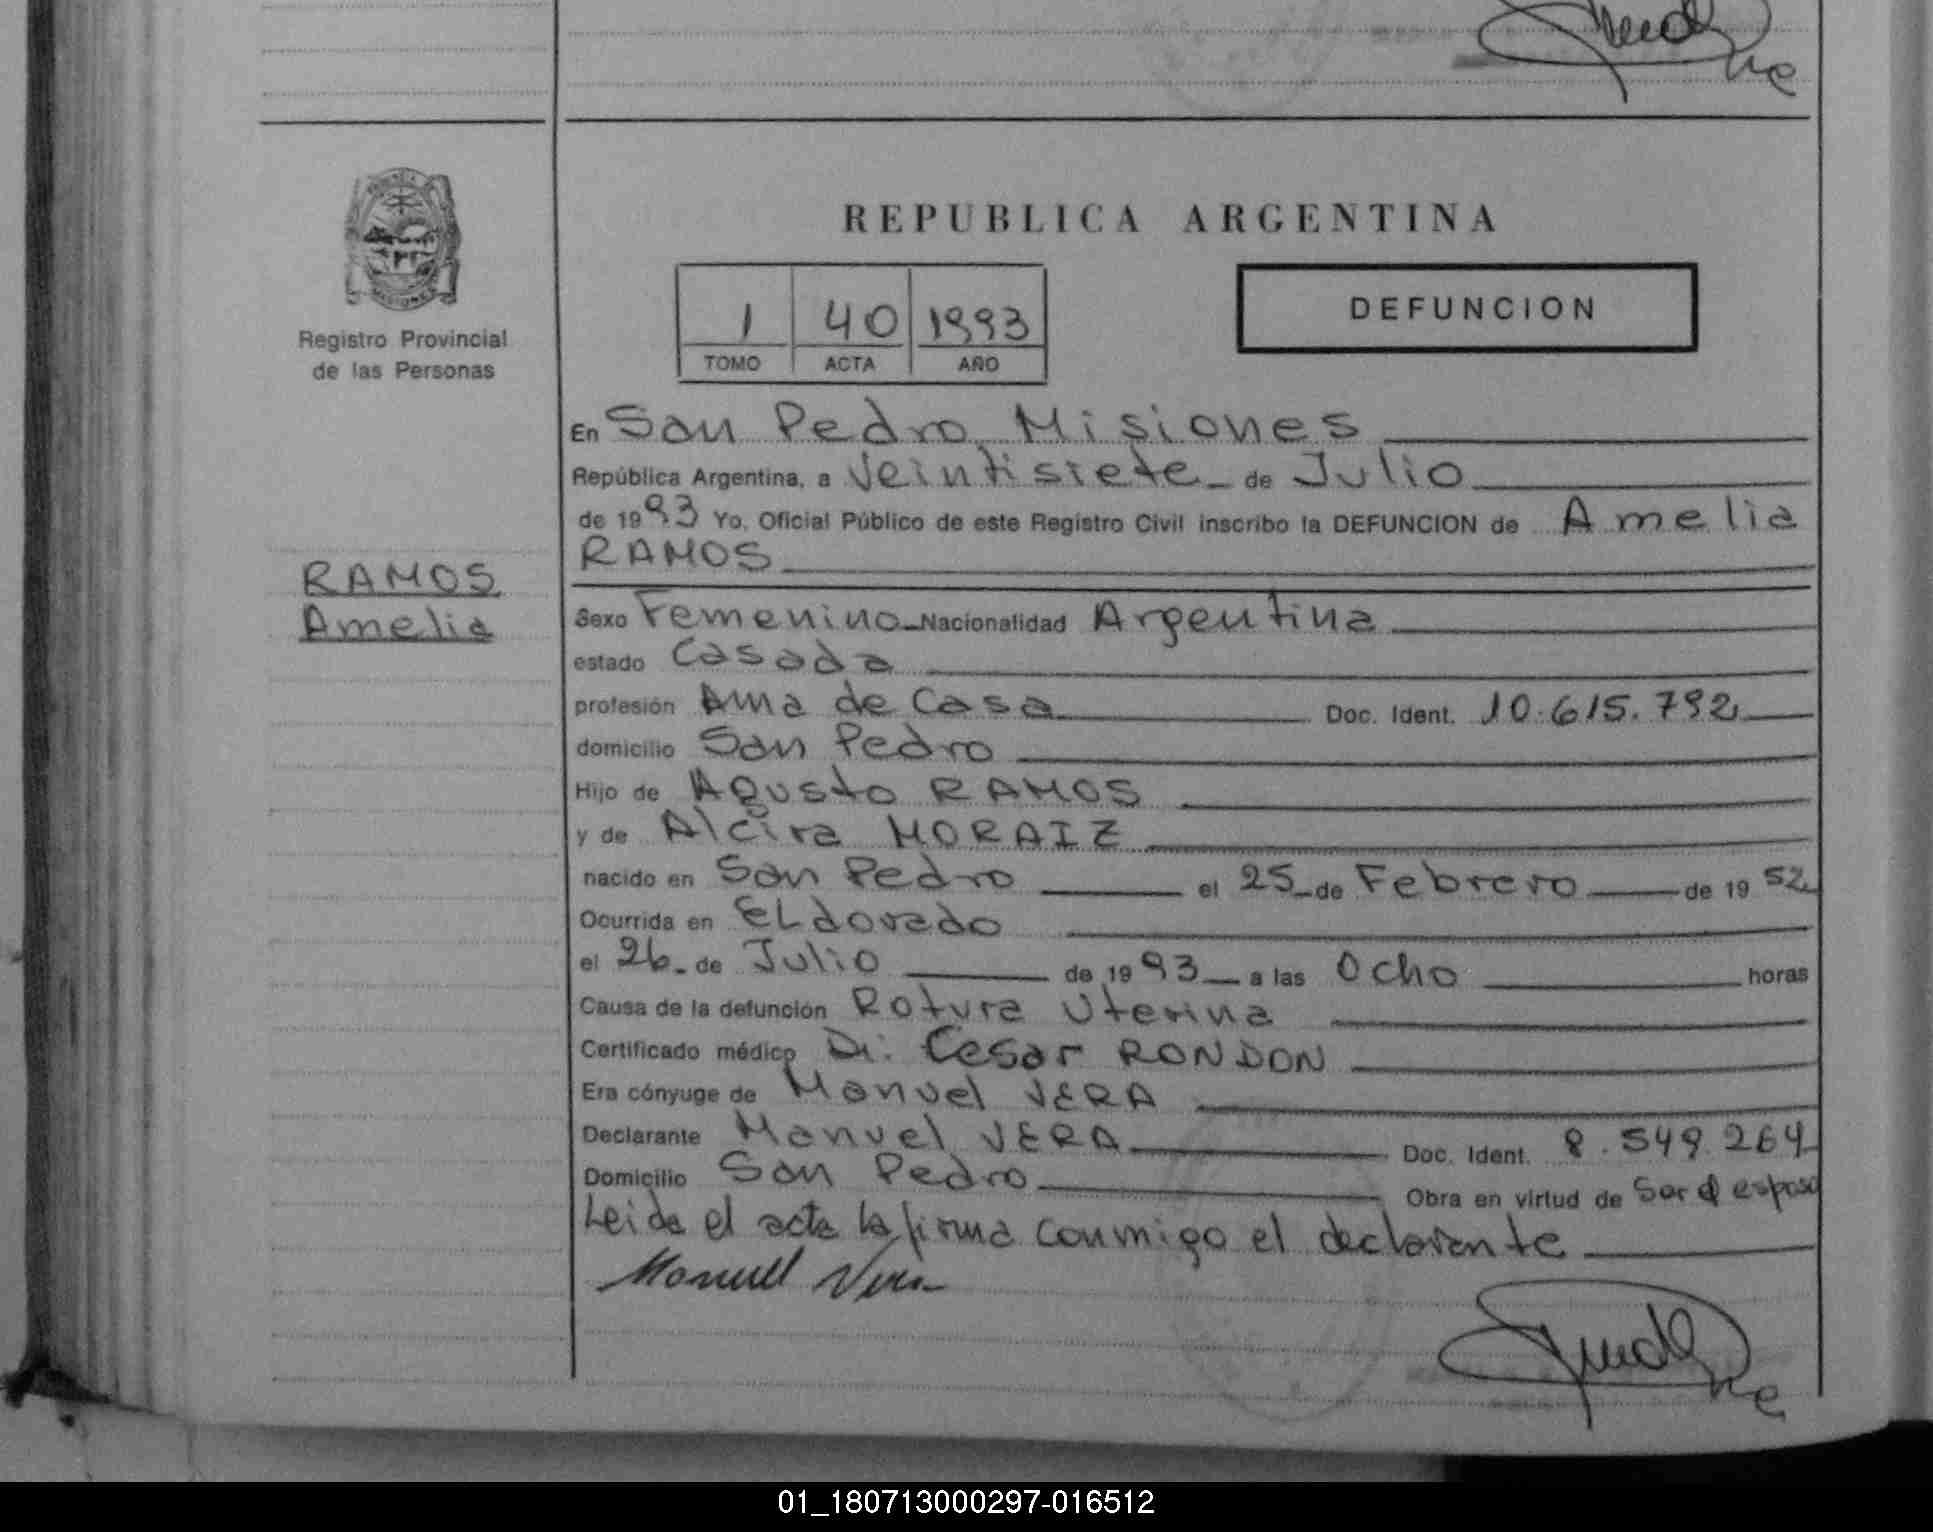 REPUBLICA ARGENTINA
Registro Provincial
de las Personas
1 40 1993
TOMO ACTA AÑO
DEFUNCION
En San Pedro, Misiones
República Argentina, a Veintisiete de Julio
de 1993 Yo, Oficial Público de este Registro Civil inscribo la DEFUNCION de Amelia
RAMOS
RAMOS
Amelia
Sexo Femenino Nacionalidad Argentina
estado Casada
profesión Ama de Casa Doc. Ident. 10.615.792
domicilio San Pedro
Hijo de Agusto RAMOS
y de Alcira MORAIZ
nacido en San Pedro el 25 de Febrero de 1952
Ocurrida en ELdorado
el 26 de Julio de 1993 a las Ocho horas
Causa de la defunción Rotura Uterina
Certificado médico Dr. Cesar RONDON
Era cónyuge de Manuel VERA
Declarante Manuel VERA Doc. Ident. 8.549.264
Domicilio San Pedro Obra en virtud de Ser el esposo
Leida el acta la firma conmigo el declarante
Manuell Vera
01_180713000297-016512